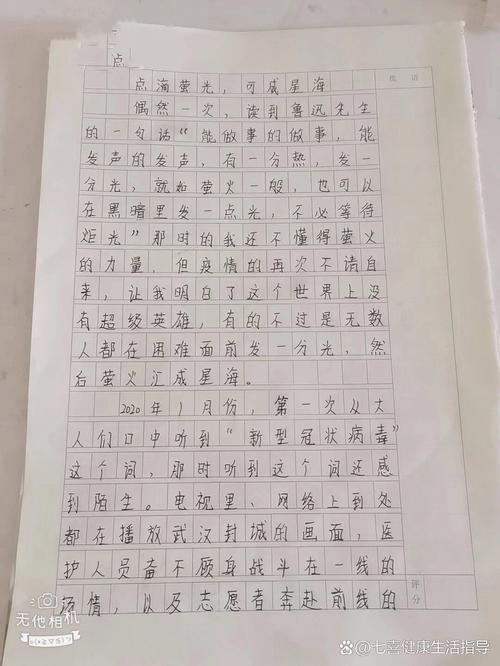 点
点滴萤光，可成星海
批 语
偶然一次，读到鲁迅先生
的一句话“能做事的做事，能
发声的发声，有一分热，发一
分光，就如萤火一般，也可以
在黑暗里发一点光，不必等待
炬光”那时的我还不懂得萤火
的力量，但疫情的再次不请自
来，让我明白了这个世界上没
有超级英雄，有的不过是无数
人都在困难面前发一分光，然
后萤火汇成星海。
2020年1月份，第一次从大
人们口中听到“新型冠状病毒”
这个词，那时听到这个词还感
到陌生。电视里、网络上到处
都在播放武汉封城的画面，医
护人员奋不顾身战斗在一线的
场情，以及志愿者奔赴前线的
评分
无他相机
七喜健康生活指导